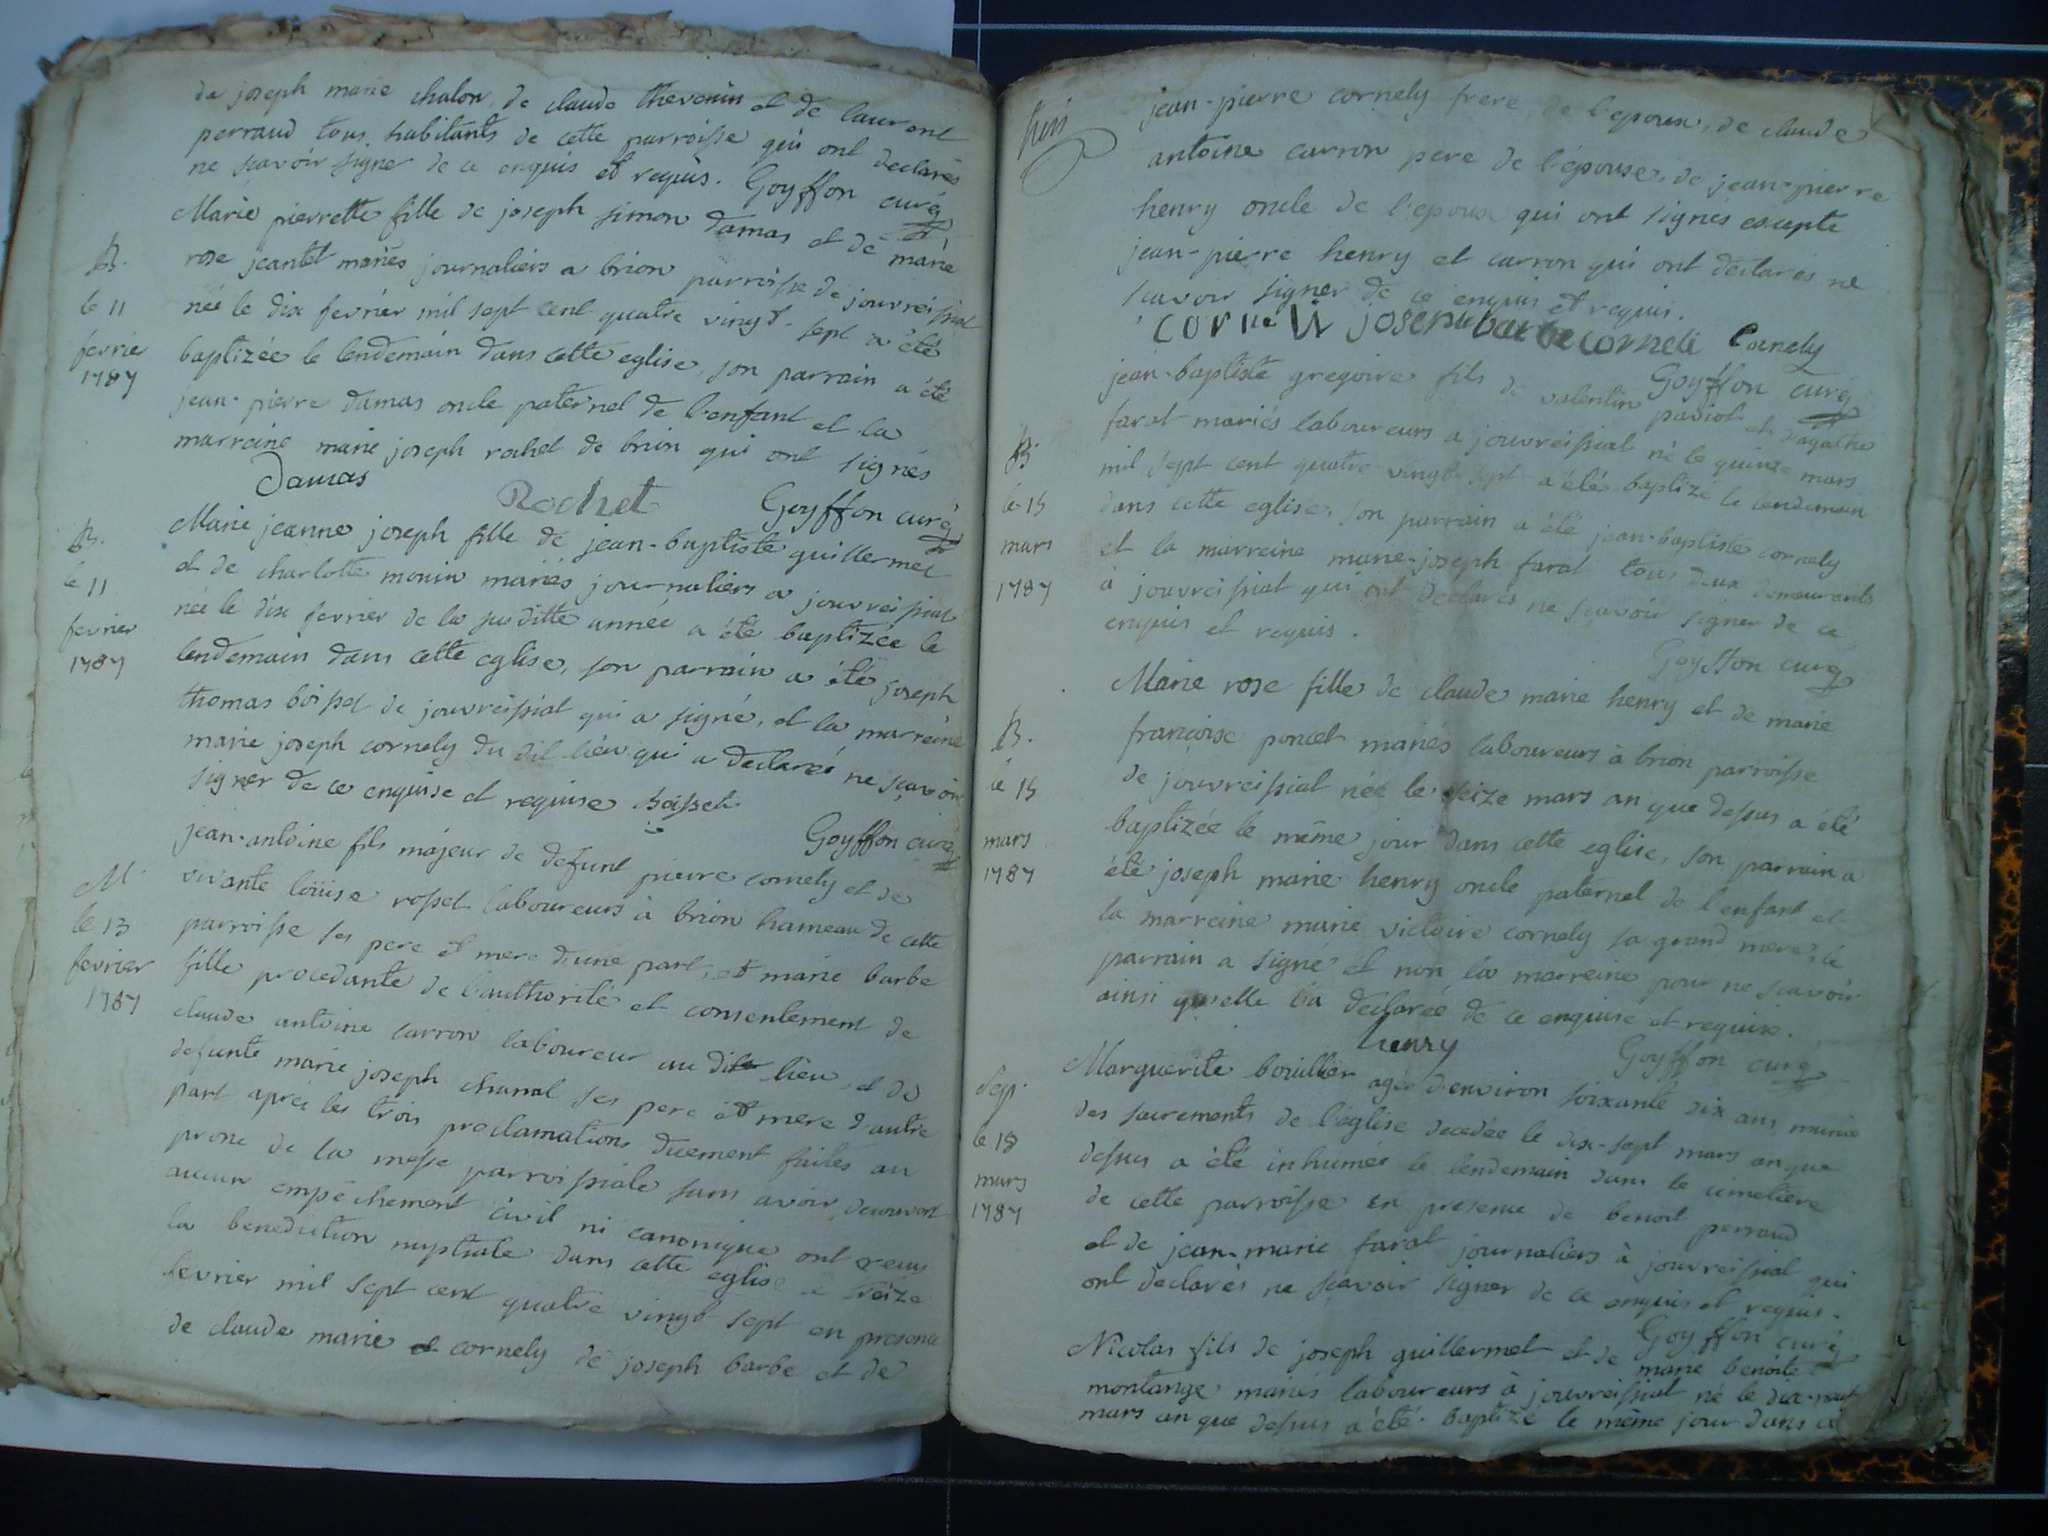 de joseph marie chalon, de claude thevenin et de laurent
perraud tous habitants de cette parroisse qui ont declarés
ne scavoir signer de ce enquis et requis. Goyffon curé
Marie pierrette fille de joseph simon damas et de marie
rose jeantet mariés journaliers a brion parroisse de jouvreissiat
née le dix fevrier mil sept cent quatre vingt-sept a été
baptizée le lendemain dans cette eglise, son parrain a été
jean-pierre damas oncle paternel de l'enfant et la
marreine marie joseph rochet de brion qui ont signés
B.
le 11
fevrie
1787
Damas Rochet Goyffon curé
Marie jeanne joseph fille de jean-baptiste guillermet
et de charlotte monin mariés journaliers a jouvreissiat
née le dix fevrier de la susditte année a été baptizée le
lendemain dans cette eglise, son parrain a été joseph
thomas boisset de jouvreissiat qui a signé, et la marreine
marie joseph cornely du dit lieu qui a declaré ne sçavoir
signer de ce enquise et requise Boisset
Goyffon curé
B.
le 11
fevrier
1787
jean-antoine fils majeur de defunt pierre cornely et de
vivante loüise rosset laboureurs à brion hameau de cette
parroisse ses pere et mere d'une part, et marie barbe
fille procedante de l'authorité et consentement de
claude antoine carron laboureur au dit lieu et de
defunte marie joseph chanal ses pere et mere d'autre
part aprés les trois proclamations düement faites au
prone de la messe parroissiale sans avoir decouvert
aucun empêchement civil ni canonique ont reçus
la benediction nuptiale dans cette eglise le treize
fevrier mil sept cent quatre vingt sept en presence
de claude marie cornely de joseph barbe et de
M.
le 13
fevrier
1787
jean-pierre cornely frere de l'epoux, de claude
antoine carron pere de l'épouse, de jean-pierre
henry oncle de l'epoux qui ont signés excepté
jean-pierre henry et carron qui ont declarés ne
scavoir signer de ce enquis et requis.
corneli joseph barbe corneli Cornely
Goyffon curé
jean-baptiste gregoire fils de valentin paviot et d'agathe
farat mariés laboureurs a jouvreissiat né le quinze mars
mil sept cent quatre-vingt sept a été baptizé le lendemain
dans cette eglise, son parrain a été jean-baptiste cornely
et la marreine marie-joseph farat tous deux demeurants
à jouvreissiat qui ont declarés ne scavoir signer de ce
enquis et requis.
Goyffon curé
B.
le 15
mars
1787
Marie rose fille de claude marie henry et de marie
françoise poncet mariés laboureurs à brion parroisse
de jouvreissiat née le seize mars an que dessus a été
baptizée le même jour dans cette eglise, son parrain a
été joseph marie henry oncle paternel de l'enfant et
la marreine marie victoire cornely sa grand mere, le
parrain a signé et non la marreine pour ne scavoir
ainsi qu'elle l'a déclarée de ce enquise et requise.
henry Goyffon curé
B.
le 15
mars
1787
Marguerite bouillier agée d'environ soixante dix ans munie
des sacrements de l'église decedée le dix-sept mars an que
dessus a été inhumée le lendemain dans le cimetiere
de cette parroisse en presence de benoit perraud
et de jean-marie farat journaliers à jouvreissiat qui
ont déclarés ne scavoir signer de ce enquis et requis.
Goyffon curé
Sep.
le 18
mars
1787
Nicolas fils de joseph guillermet et de marie benoite
montange mariés laboureurs à jouvreissiat né le dix-neuf
mars an que dessus a été baptizé le même jour dans ce